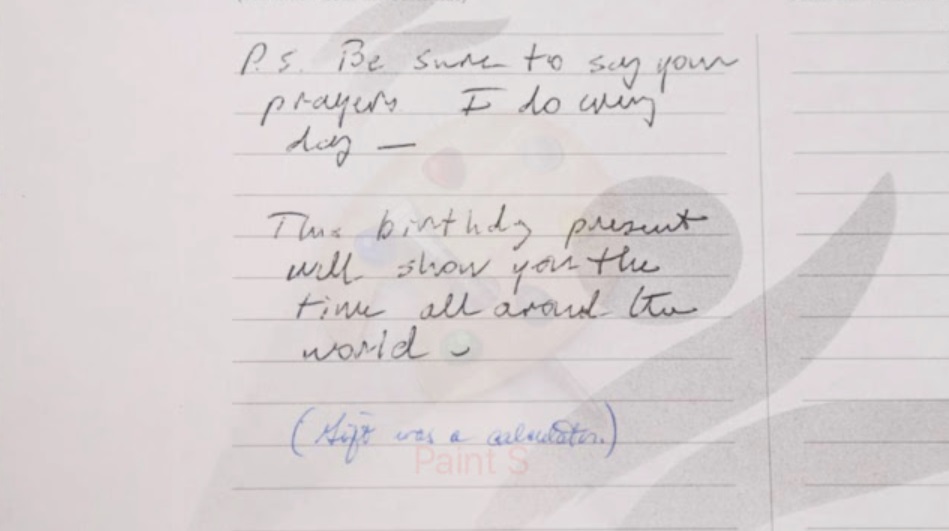 P.S. Be sure to say your
prayers I do every
day —
This birthday present
will show you the
time all around the
world
(Gift was a calculator.)
Paint S